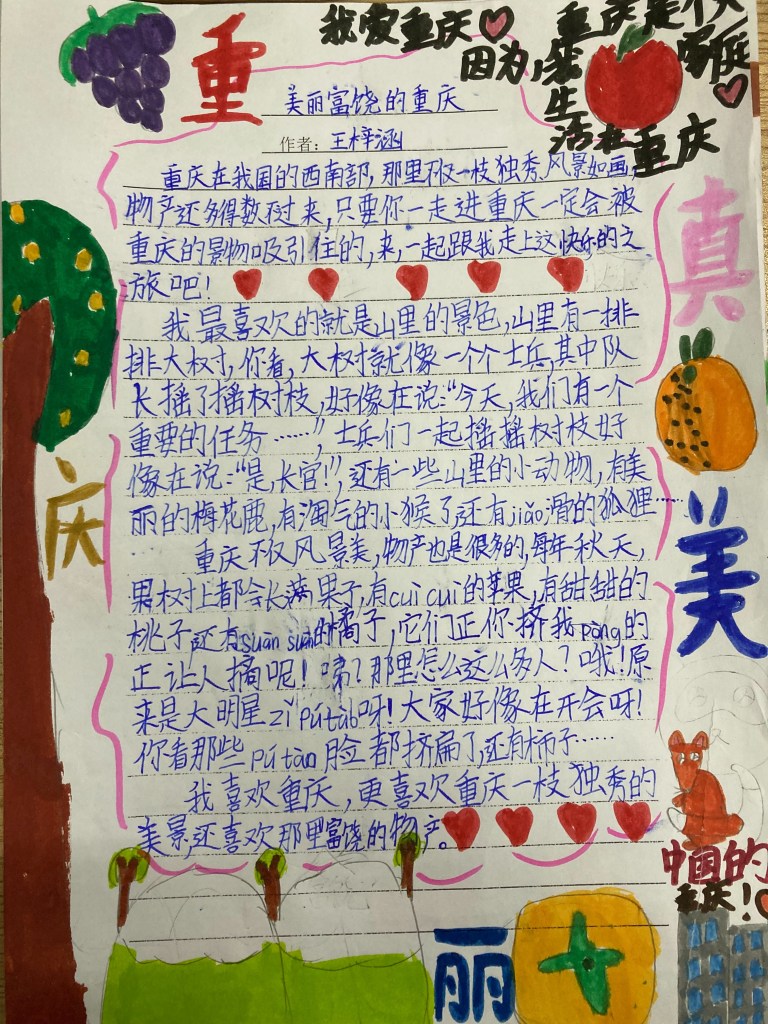 重
我爱重庆
因为,我
生
活在重庆
重庆是个大
家庭
美丽富饶的重庆
作者：王梓涵
重庆在我国的西南部,那里不仅一枝独秀、风景如画,
物产还多得数不过来,只要你一走进重庆一定会被
重庆的景物吸引住的,来,一起跟我走上这快乐的之
旅吧!
我最喜欢的就是山里的景色,山里有一排
排大树,你看,大树就像一个个士兵,其中队
长摇了摇树枝,好像在说:“今天,我们有一个
重要的任务……”,士兵们一起摇摇树枝好
像在说:“是,长官!”,还有一些山里的小动物,有美
丽的梅花鹿,有淘气的小猴了,还有jiǎo滑的狐狸……
…
重庆不仅风景美,物产也是很多的,每年秋天,
果树上都会长满果子,有cuì cuì的苹果,有甜甜的
桃子,还有suān suān的橘子,它们正你挤我pèng的
正让人摘呢!咦?那里怎么这么多人?哦!原
来是大明星zǐ pútàb呀!大家好像在开会呀!
你看那些pútàn脸都挤扁了,还有柿子……
我喜欢重庆,更喜欢重庆一枝独秀的
美景,还喜欢那里富饶的物产。
庆
真
美
丽
中国的
重庆!